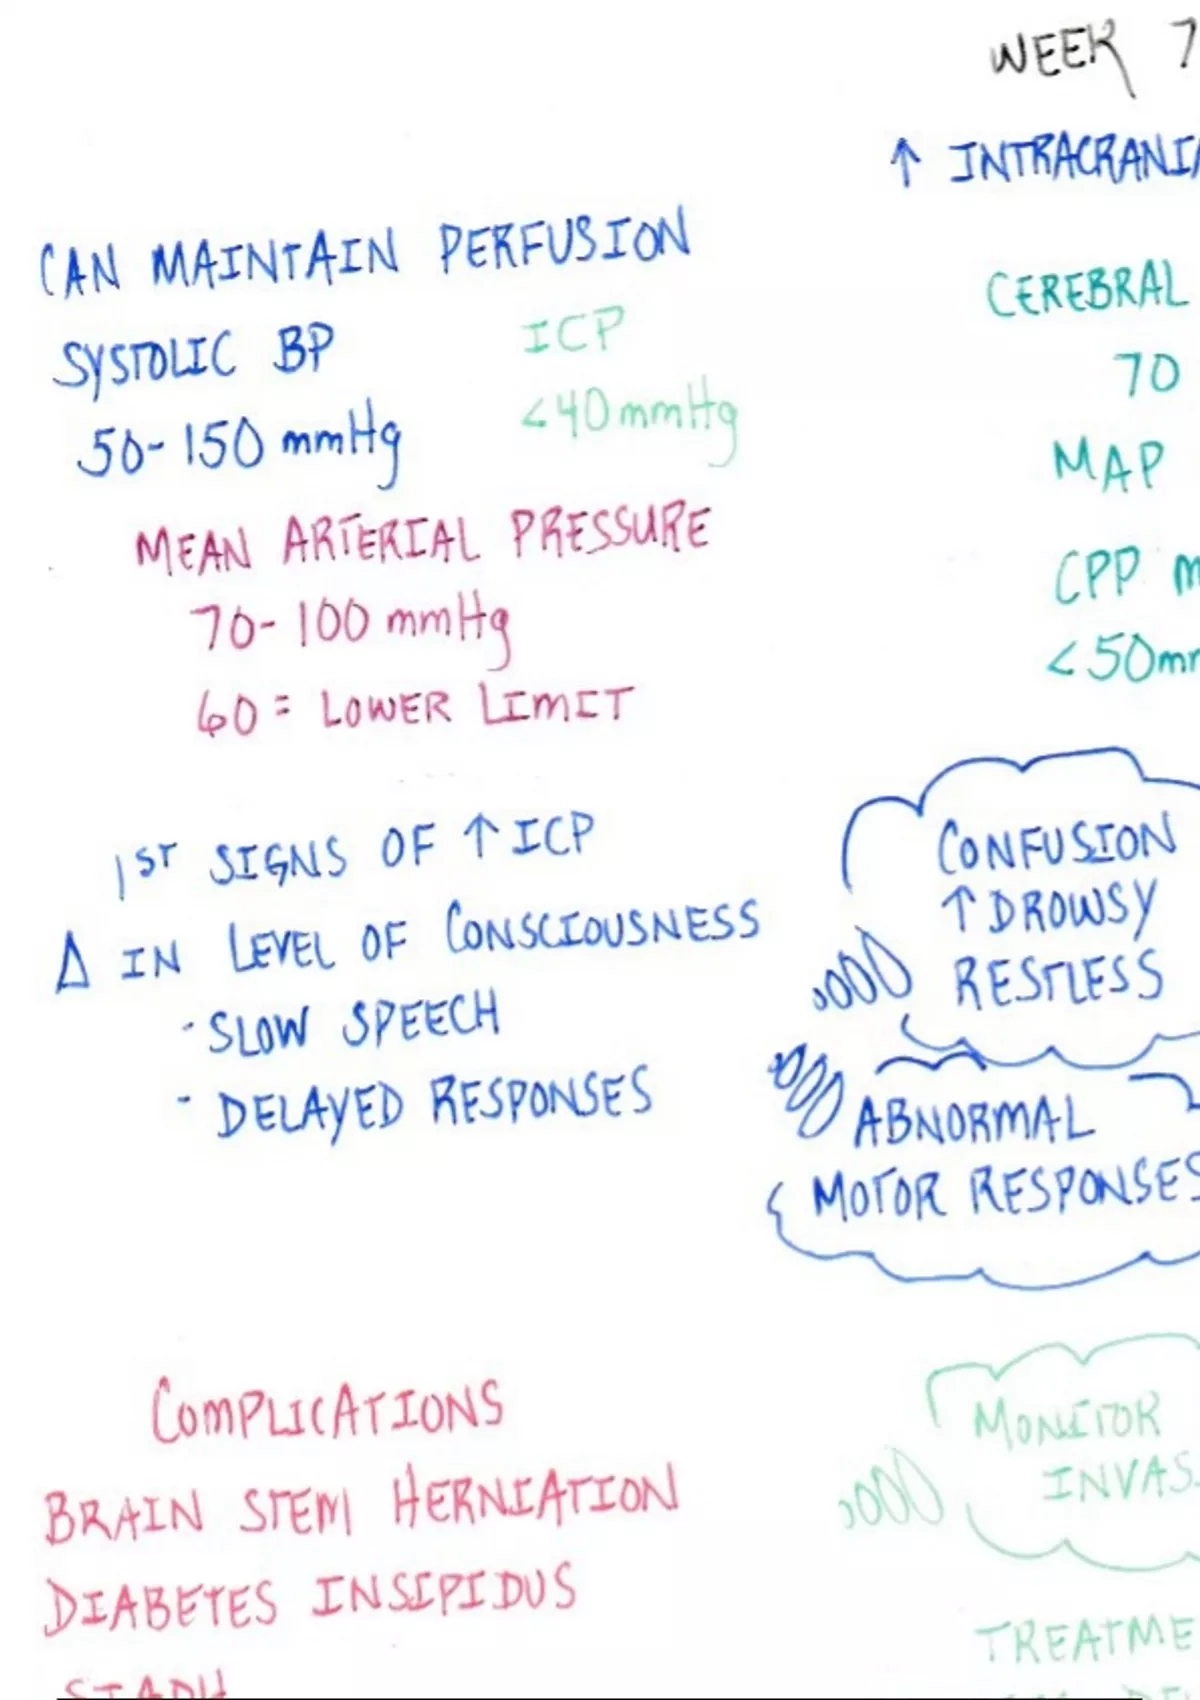 WEEK 7
↑ INTRACRANIA
CAN MAINTAIN PERFUSION
SYSTOLIC BP
50-150 mmHg
ICP
<40mmHg
MEAN ARTERIAL PRESSURE
70-100 mmHg
60 = LOWER LIMIT
CEREBRAL
70
MAP
CPP m
<50mm
1ST SIGNS OF ↑ ICP
Δ IN LEVEL OF CONSCIOUSNESS
- SLOW SPEECH
- DELAYED RESPONSES
CONFUSION
↑ DROWSY
RESTLESS
ABNORMAL
MOTOR RESPONSES
COMPLICATIONS
BRAIN STEM HERNIATION
DIABETES INSIPIDUS
SIADH
MONITOR
INVAS
TREATME